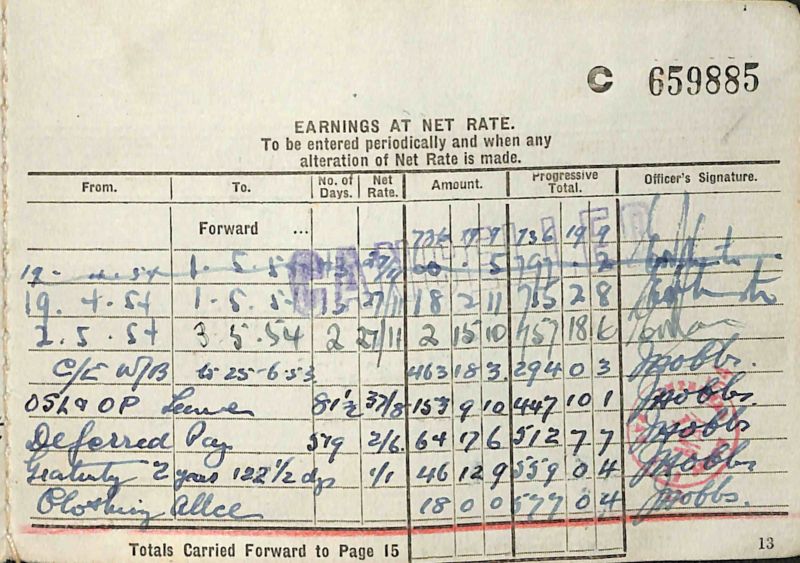 C 659885
EARNINGS AT NET RATE.
To be entered periodically and when any
alteration of Net Rate is made.
From. To. No. of Days. Net Rate. Amount. Progressive Total. Officer's Signature.
Forward ... 736 19 9 736 19 9
CANCELLED
19. 4. 54 1. 5. 5
19. 4. 54 1. 5. 5 13 27/11 18 2 11 755 2 8
2. 5. 54 3. 5. 54 2 27/11 2 15 10 757 18 6
C/F W/B to 25-6-53 463 18 3 294 0 3 Hobbs.
OSL & OP Leave 81½ 37/8 153 9 10 447 10 1 Hobbs.
Deferred Pay 519 2/6 64 17 6 512 7 7 Hobbs
Gratuity 2 years 122½ dys 1/1 46 12 9 559 0 4 Hobbs
Clothing Allce 18 0 0 577 0 4 Hobbs.
Totals Carried Forward to Page 15
13